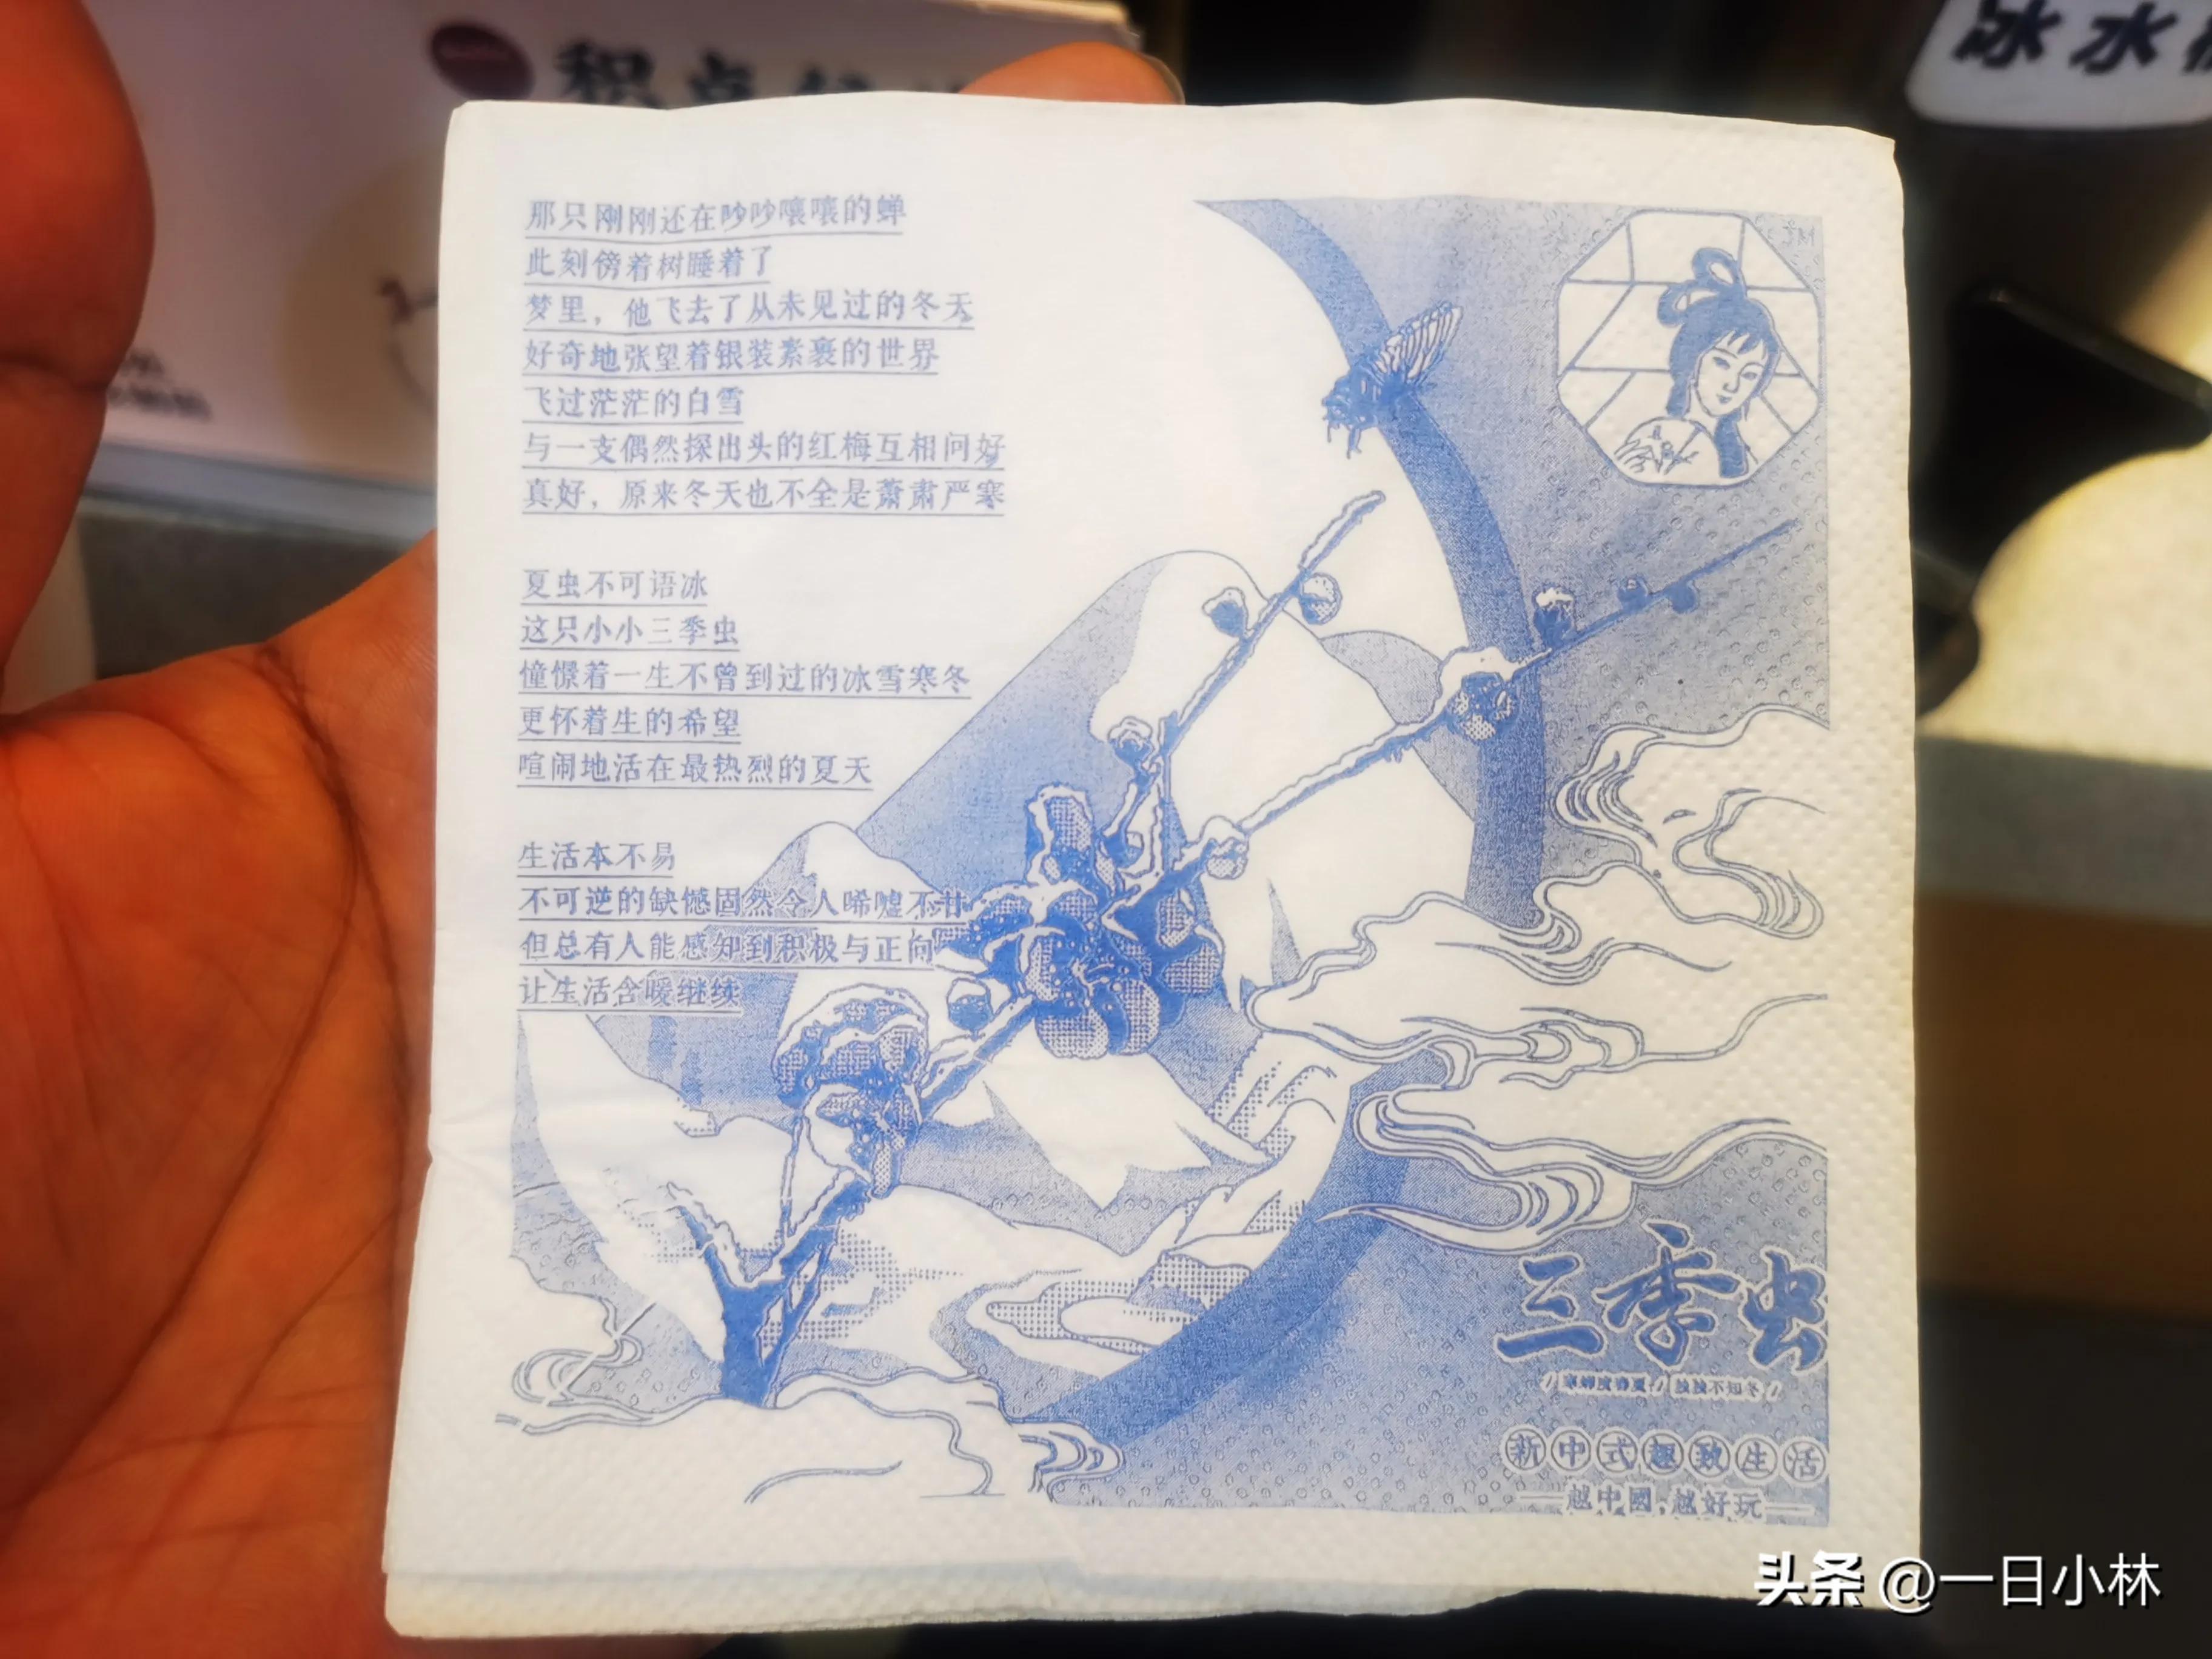 积点
冰水
那只刚刚还在吵吵嚷嚷的蝉
此刻傍着树睡着了
梦里，他飞去了从未见过的冬天
好奇地张望着银装素裹的世界
飞过茫茫的白雪
与一支偶然探出头的红梅互相问好
真好，原来冬天也不全是萧肃严寒
夏虫不可语冰
这只小小三季虫
憧憬着一生不曾到过的冰雪寒冬
更怀着生的希望
喧闹地活在最热烈的夏天
生活本不易
不可逆的缺憾固然令人唏嘘不甘
但总有人能感知到积极与正向
让生活含暖继续
三季虫
不知冬
新中式趣致生活
越中國，越好玩
头条 @一日小林